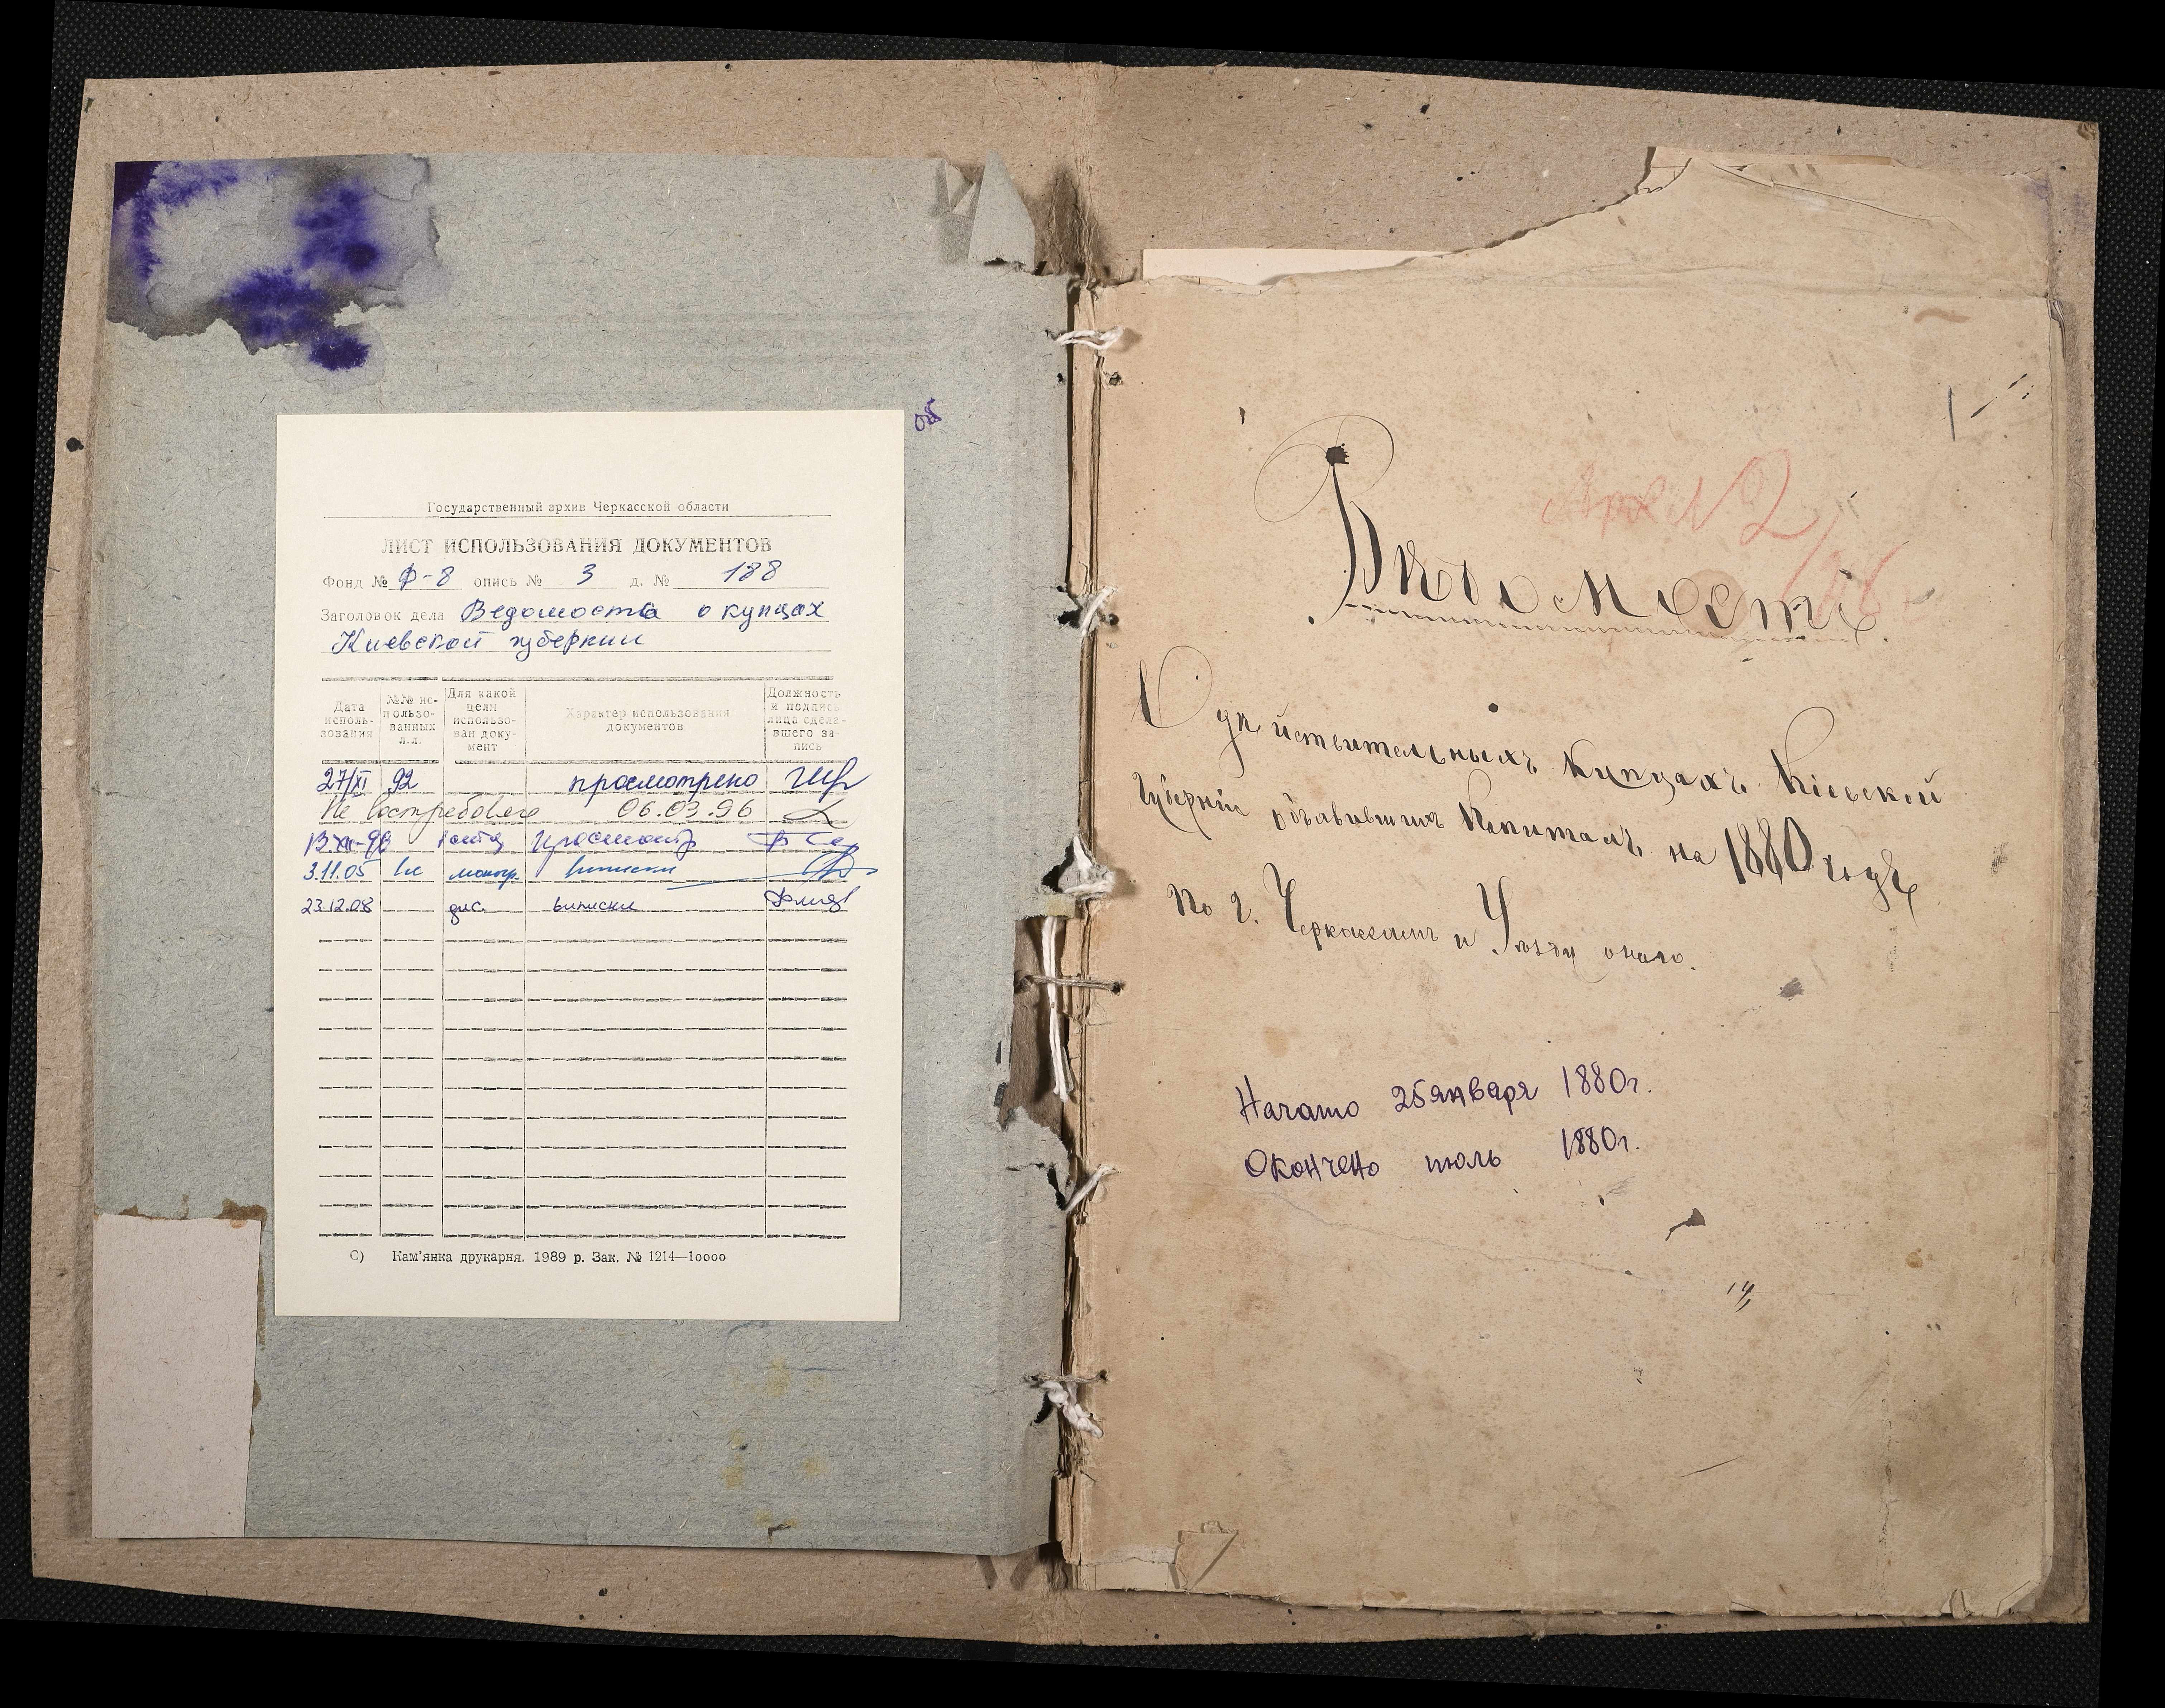 Государственный архив Черкасской области
ЛИСТ ИСПОЛЬЗОВАНИЯ ДОКУМЕНТОВ
Фонд № Ф-8 опись № 3 д. № 188
Заголовок дела Ведомости о купцах
Киевской губернии
Дата использования
№№ использованных л.л.
Для какой цели использован документ
Характер использования документов
Должность и подпись лица сделавшего запись
27/XI 92 просмотрено
Не востребовано 06.03.96
13.XII-98 просмотр
3.11.05 моногр. выписки
23.12.08 дис. выписки
С) Кам'янка друкарня. 1989 р. Зак. № 1214—10000
№ 2
Вѣдомости.
О дѣйствительныхъ Купцахъ Кіевской
Губерніи объявившихъ Капиталъ на 1880 годъ
По г. Черкассамъ и Уѣзду онаго.
Начато 25 января 1880г.
Окончено июль 1880г.